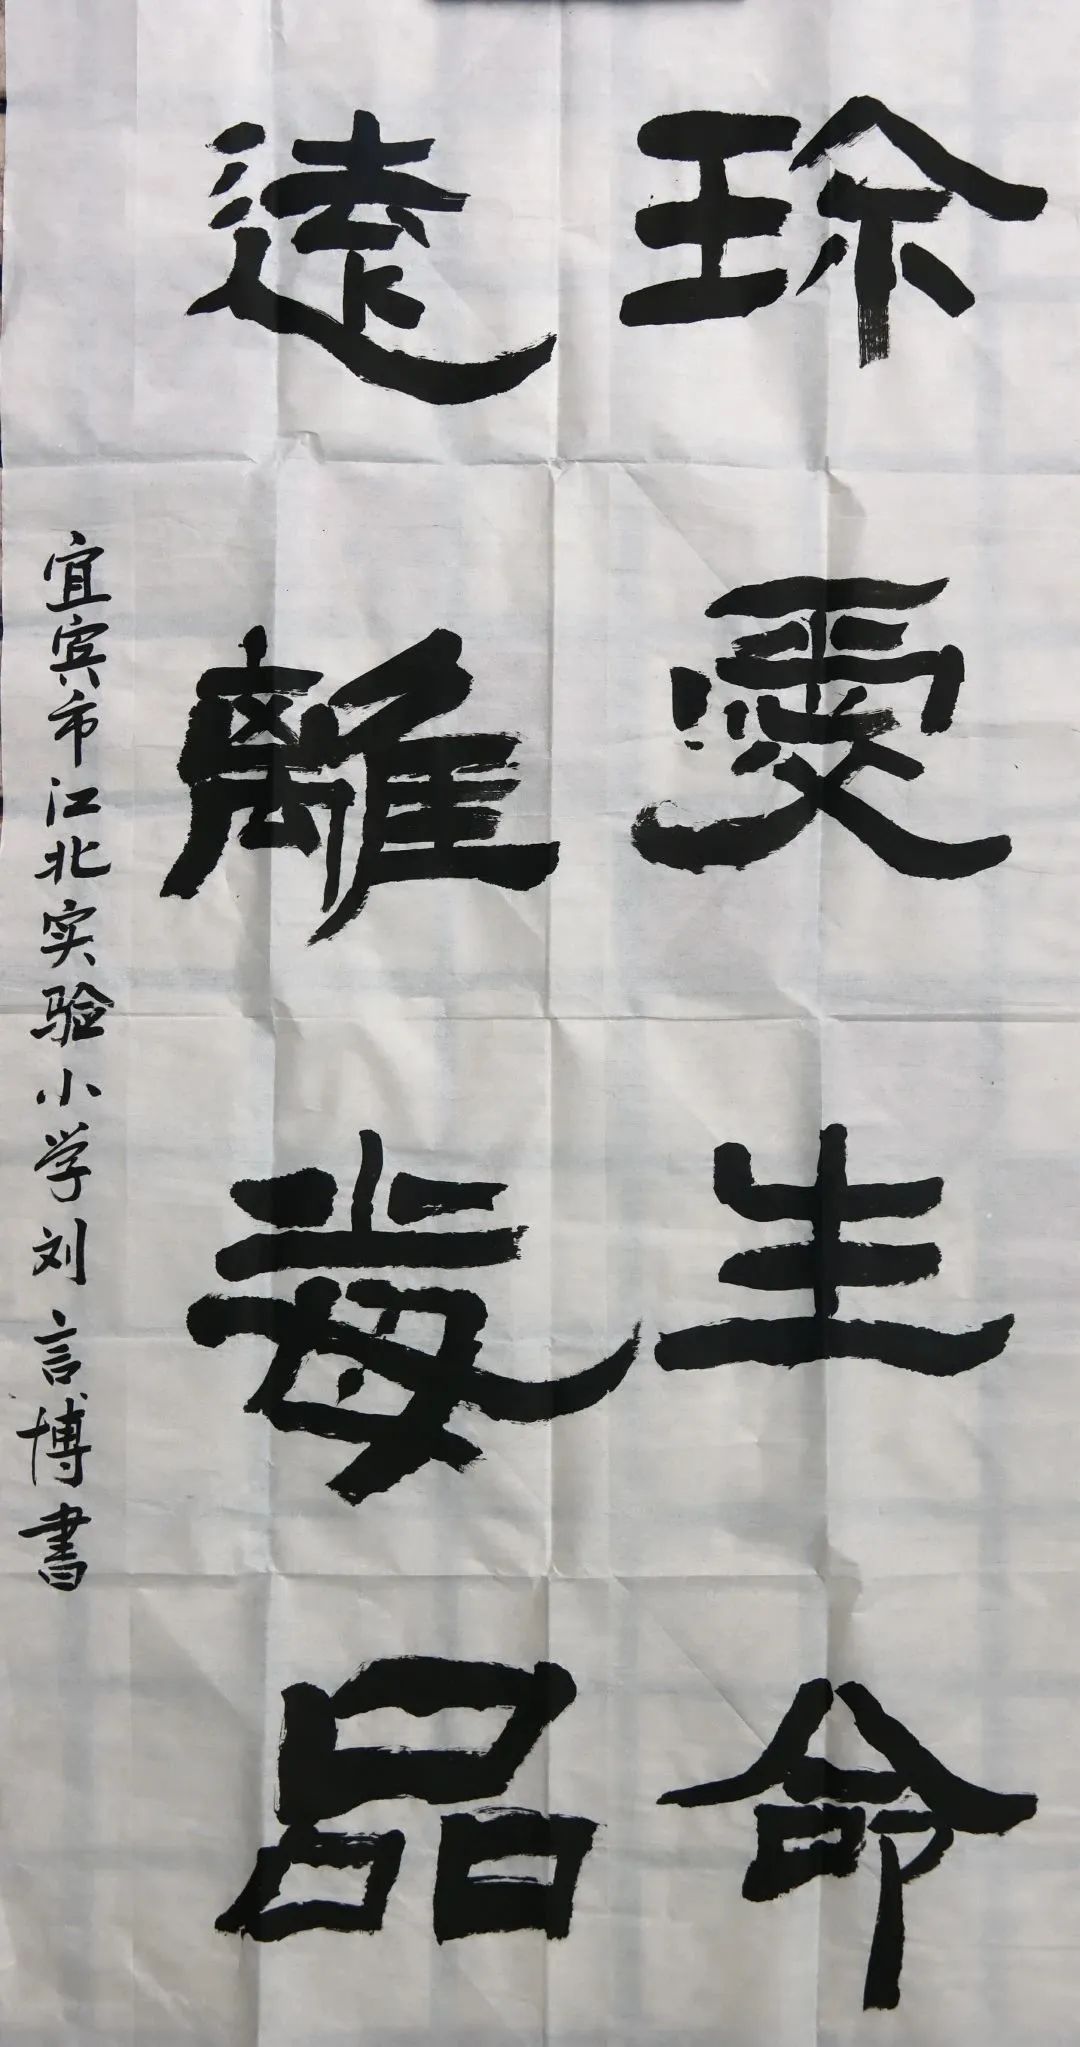 珎愛生命
遠離毒品
宜宾市江北实验小学刘言博書